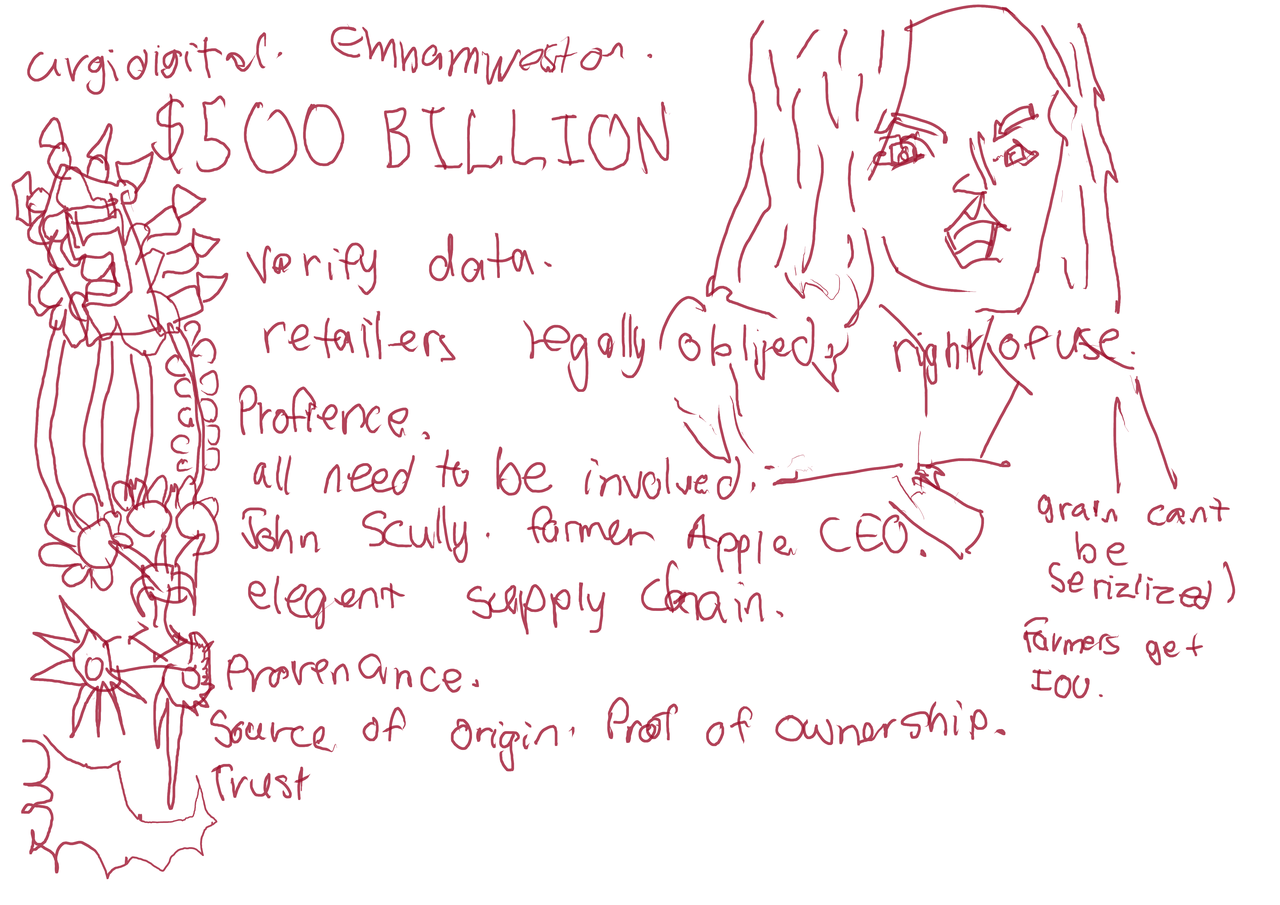 argidigital. emnamweston.
$500 BILLION
verify data.
retailers legally oblijed, right of use.
Profience.
all need to be involved.
John Scully. former Apple CEO.
elegent supply chain.
Provenance.
Source of origin. Prof of ownership.
Trust
grain cant
be
serizlized)
Farmers get
IOU.